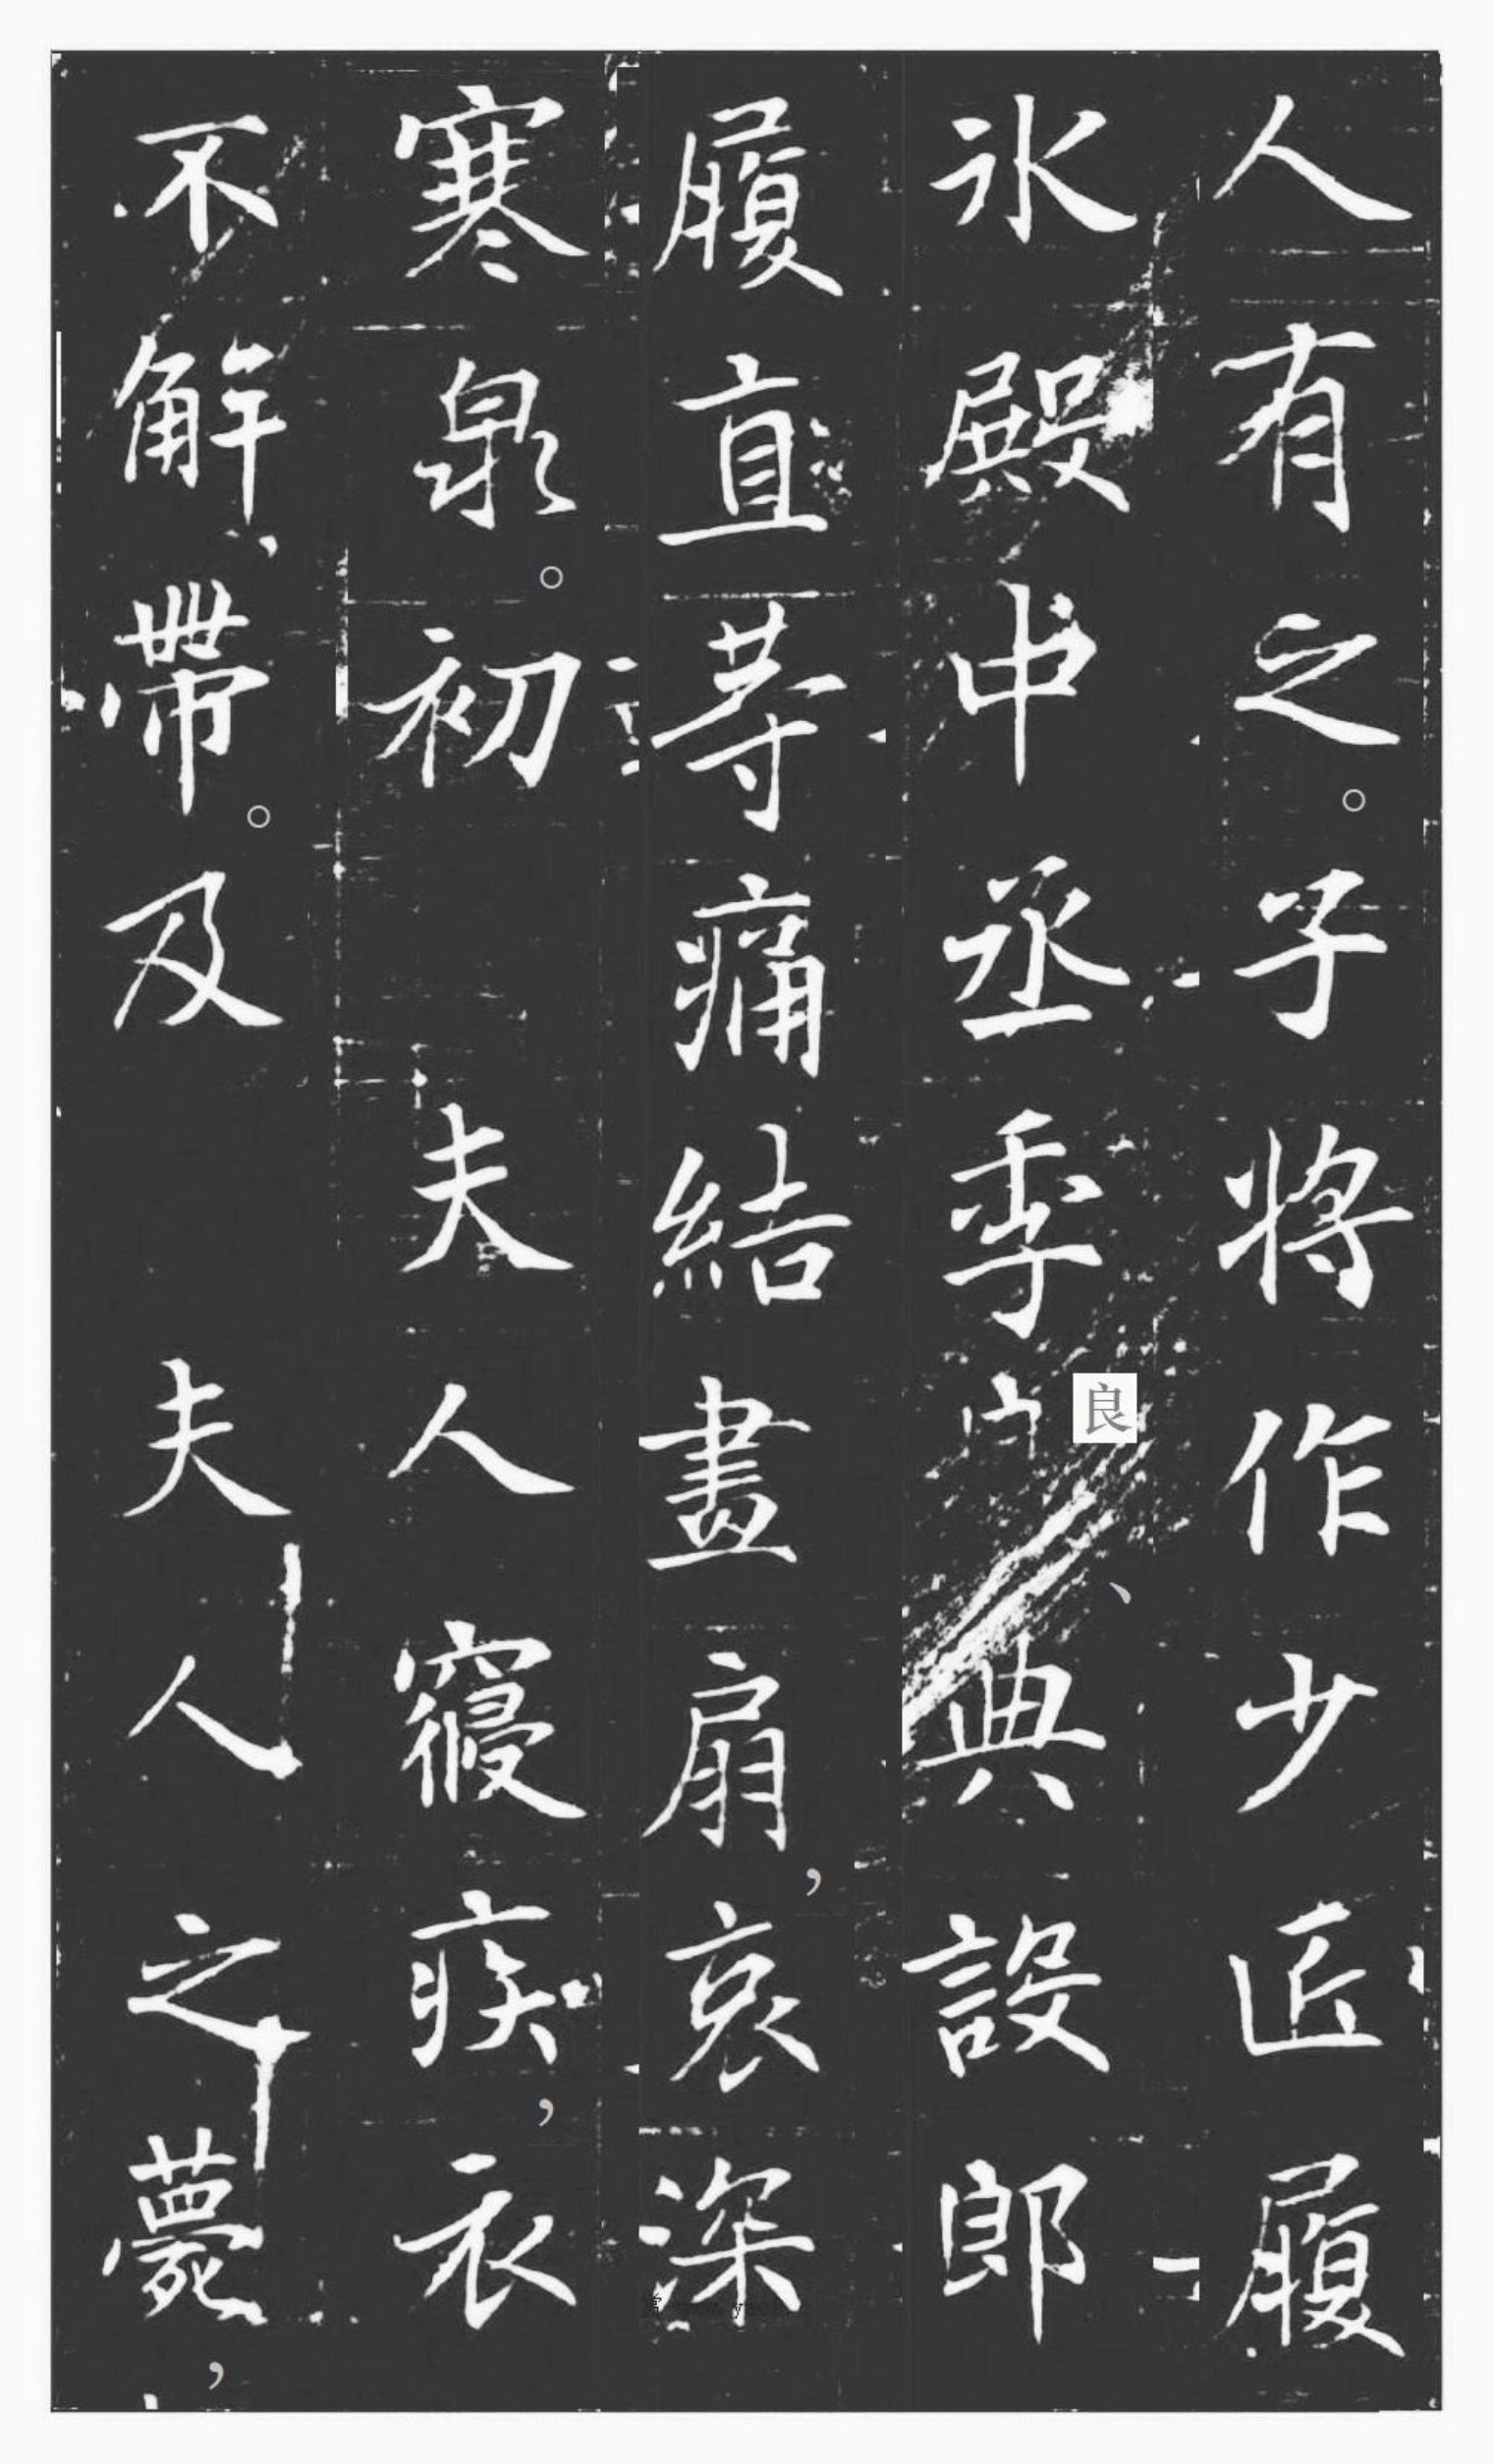 人有之。子將作少匠履
氷殿中丞季良、典設郎
履直等痛結晝扇，哀深
寒泉。初夫人寢疾，衣
不解帶。及夫人之薨，